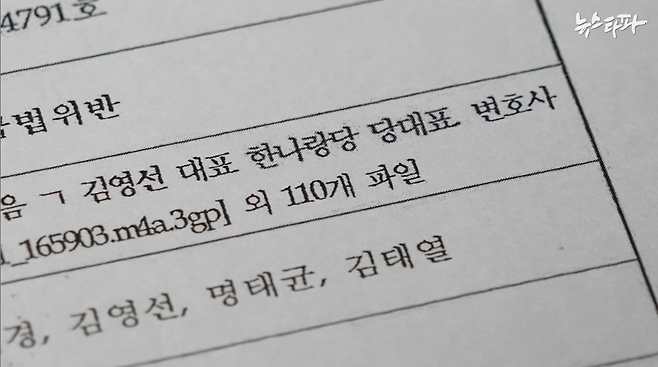 4791호
뉴스타파
법위반
음 ㄱ 김영선 대표 한나랑당 당대표. 변호사
_165903.m4a.3gp] 외 110개 파일
경, 김영선, 명태균, 김태열